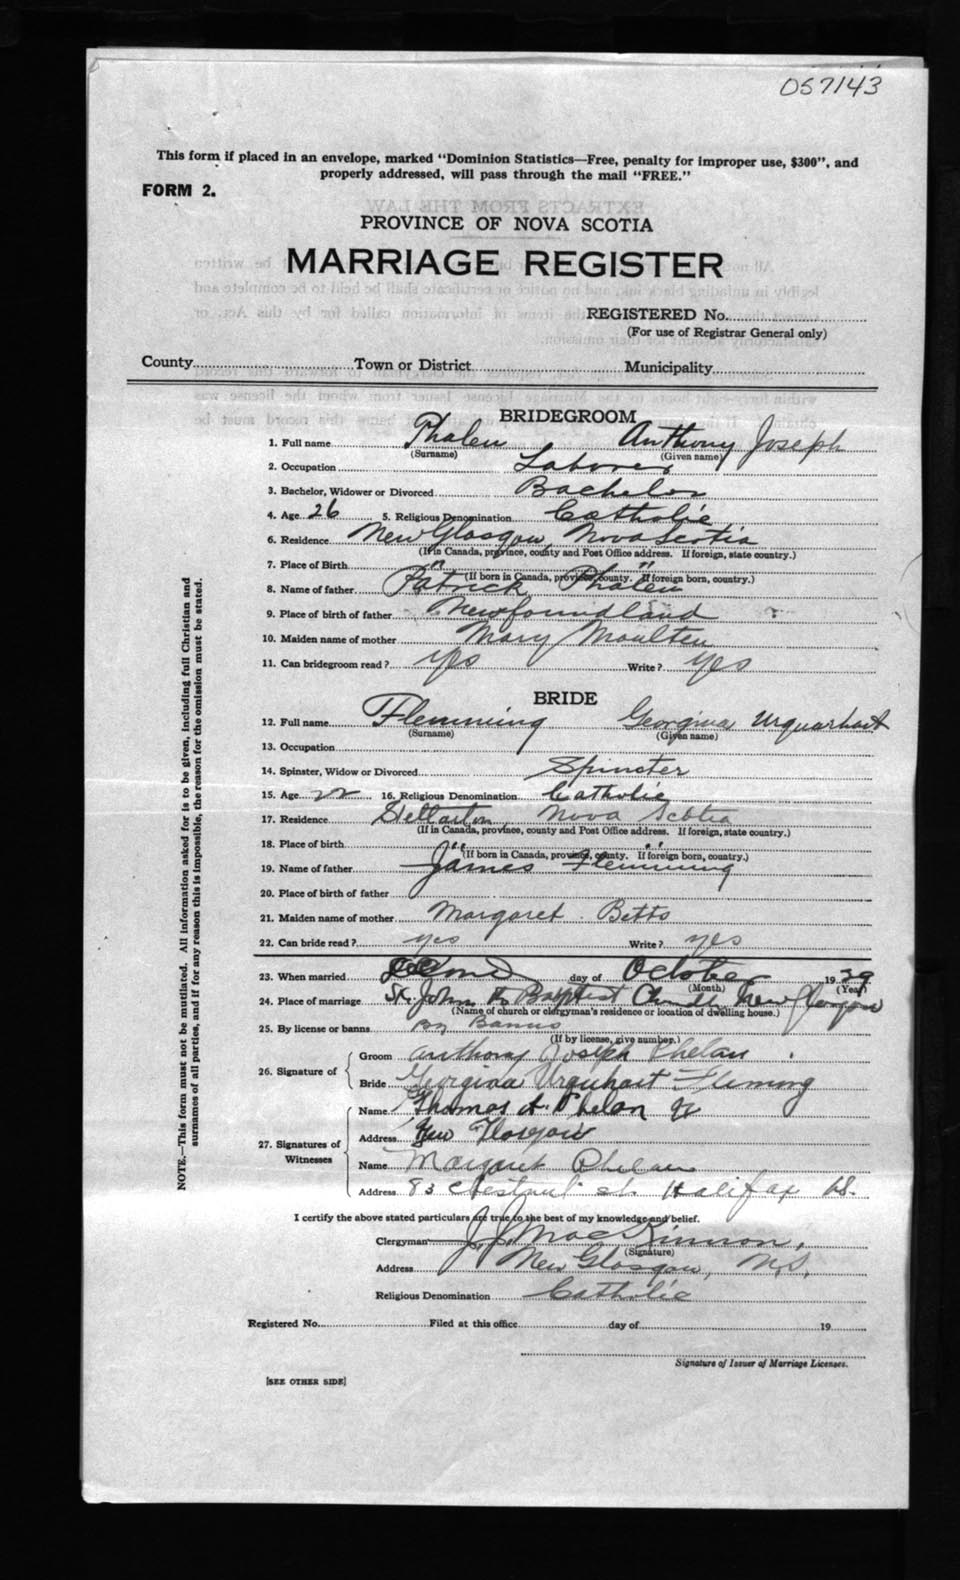 057143
This form if placed in an envelope, marked "Dominion Statistics—Free, penalty for improper use, $300", and
properly addressed, will pass through the mail "FREE."
FORM 2.
PROVINCE OF NOVA SCOTIA
MARRIAGE REGISTER
REGISTERED No.
(For use of Registrar General only)
County Town or District Municipality
BRIDEGROOM
1. Full name Phalen Anthony Joseph
(Surname) (Given name)
2. Occupation Laborer
3. Bachelor, Widower or Divorced Bachelor
4. Age 26 5. Religious Denomination Catholic
6. Residence New Glasgow, Nova Scotia
(If in Canada, province, county and Post Office address. If foreign, state country.)
7. Place of Birth " "
(If born in Canada, province, county. If foreign born, country.)
8. Name of father Patrick Phalen
9. Place of birth of father Newfoundland
10. Maiden name of mother Mary Moulten
11. Can bridegroom read? yes Write? yes
BRIDE
12. Full name Flemming Georgina Urquarhart
(Surname) (Given name)
13. Occupation
14. Spinster, Widow or Divorced Spinster
15. Age 22 16. Religious Denomination Catholic
17. Residence Stellarton, Nova Scotia
(If in Canada, province, county and Post Office address. If foreign, state country.)
18. Place of birth " "
(If born in Canada, province, county. If foreign born, country.)
19. Name of father James Flemming
20. Place of birth of father
21. Maiden name of mother Margaret Betts
22. Can bride read? yes Write? yes
23. When married day of October 1939
(Month) (Year)
24. Place of marriage St. John the Baptist Church New Glasgow
(Name of church or clergyman's residence or location of dwelling house.)
25. By license or banns By Banns
(If by license, give number.)
26. Signature of
Groom Anthony Joseph Phelan
Bride Georgina Urquhart Fleming
27. Signatures of Witnesses
Name Thomas A. Phelan Jr
Address New Glasgow
Name Margaret Phelan
Address 83 Chestnut st. Halifax NS.
I certify the above stated particulars are true to the best of my knowledge and belief.
Clergyman J. J. MacKinnon,
(Signature)
Address New Glasgow, N.S,
Religious Denomination Catholic
Registered No. Filed at this office day of 19
Signature of Issuer of Marriage Licenses.
[SEE OTHER SIDE]
NOTE.—This form must not be mutilated. All information asked for is to be given, including full Christian and
surnames of all parties, and if for any reason this is impossible, the reason for the omission must be stated.